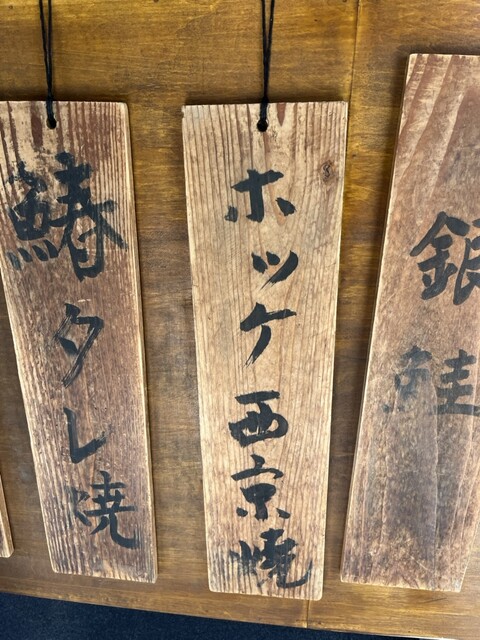 銀鮭
ホッケ西京焼
鰆タレ焼